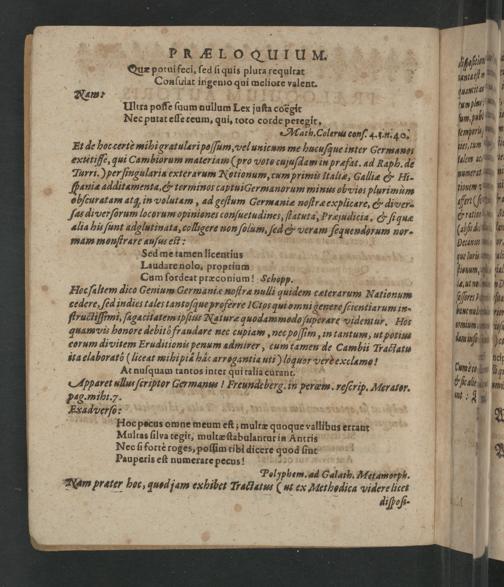 PRÆLOQUIUM.
Quæ potui feci, sed si quis plura requirat
Consulat ingenio qui meliore valent.
Nam:
Ultra posse suum nullum Lex justa coëgit
Nec putat esse reum, qui, toto corde peregit,
Math. Colerus cons. 4.3.n.40.
Et de hoc certè mihi gratulari possum, vel unicum me hucusque inter Germanos
extitisse, qui Cambiorum materiam (pro voto cujusdam in præfat. ad Raph. de
Turri.) per singularia exterarum Nationum, cum primis Italiæ, Galliæ & Hi-
spaniæ additamenta, & terminos captui Germanorum minus obvios plurimùm
obscuratam atq, in volutam, ad gestum Germaniæ nostræ explicare, & diver-
sas diversorum locorum opiniones consuetudines, statuta, Præjudicia, & si quæ
alia his sunt adglutinata, colligere non solum, sed & veram sequendorum nor-
mam monstrare ausus est:
Sed me tamen licentius
Laudare nolo, proprium
Cum sordeat præconium! Schopp.
Hoc saltem dico Genium Germaniæ nostræ nulli quidem cæterarum Nationum
cedere, sed indies tales tantosque proferre ICtos qui omni genere scientiarum in-
structissimi, sagacitatem ipsius Naturæ quodammodo superare videntur. Hos
quamvis honore debitô fraudare nec cupiam, nec possim, in tantum, ut potius
eorum divitem Eruditionis penum admirer, cum tamen de Cambii Tractatu
ita elaboratô (liceat mihi piâ hâc arrogantia uti) loquor verè exclamo!
At nusquam tantos inter qui talia curant.
Apparet ullus scriptor Germanus! Freundeberg. in peræm. rescrip. Merator.
pag. mihi. 7.
Ex adverso:
Hoc pecus omne meum est; multæ quoque vallibus errant
Multas silva tegit, multæ stabulantur in Antris
Nec si fortè roges, possim tibi dicere quod sint
Pauperis est numerare pecus!
Polyphem. ad Galath. Metamorph.
Nam præter hoc, quod jam exhibet Tractatus (ut ex Methodica videre licet
disposi-